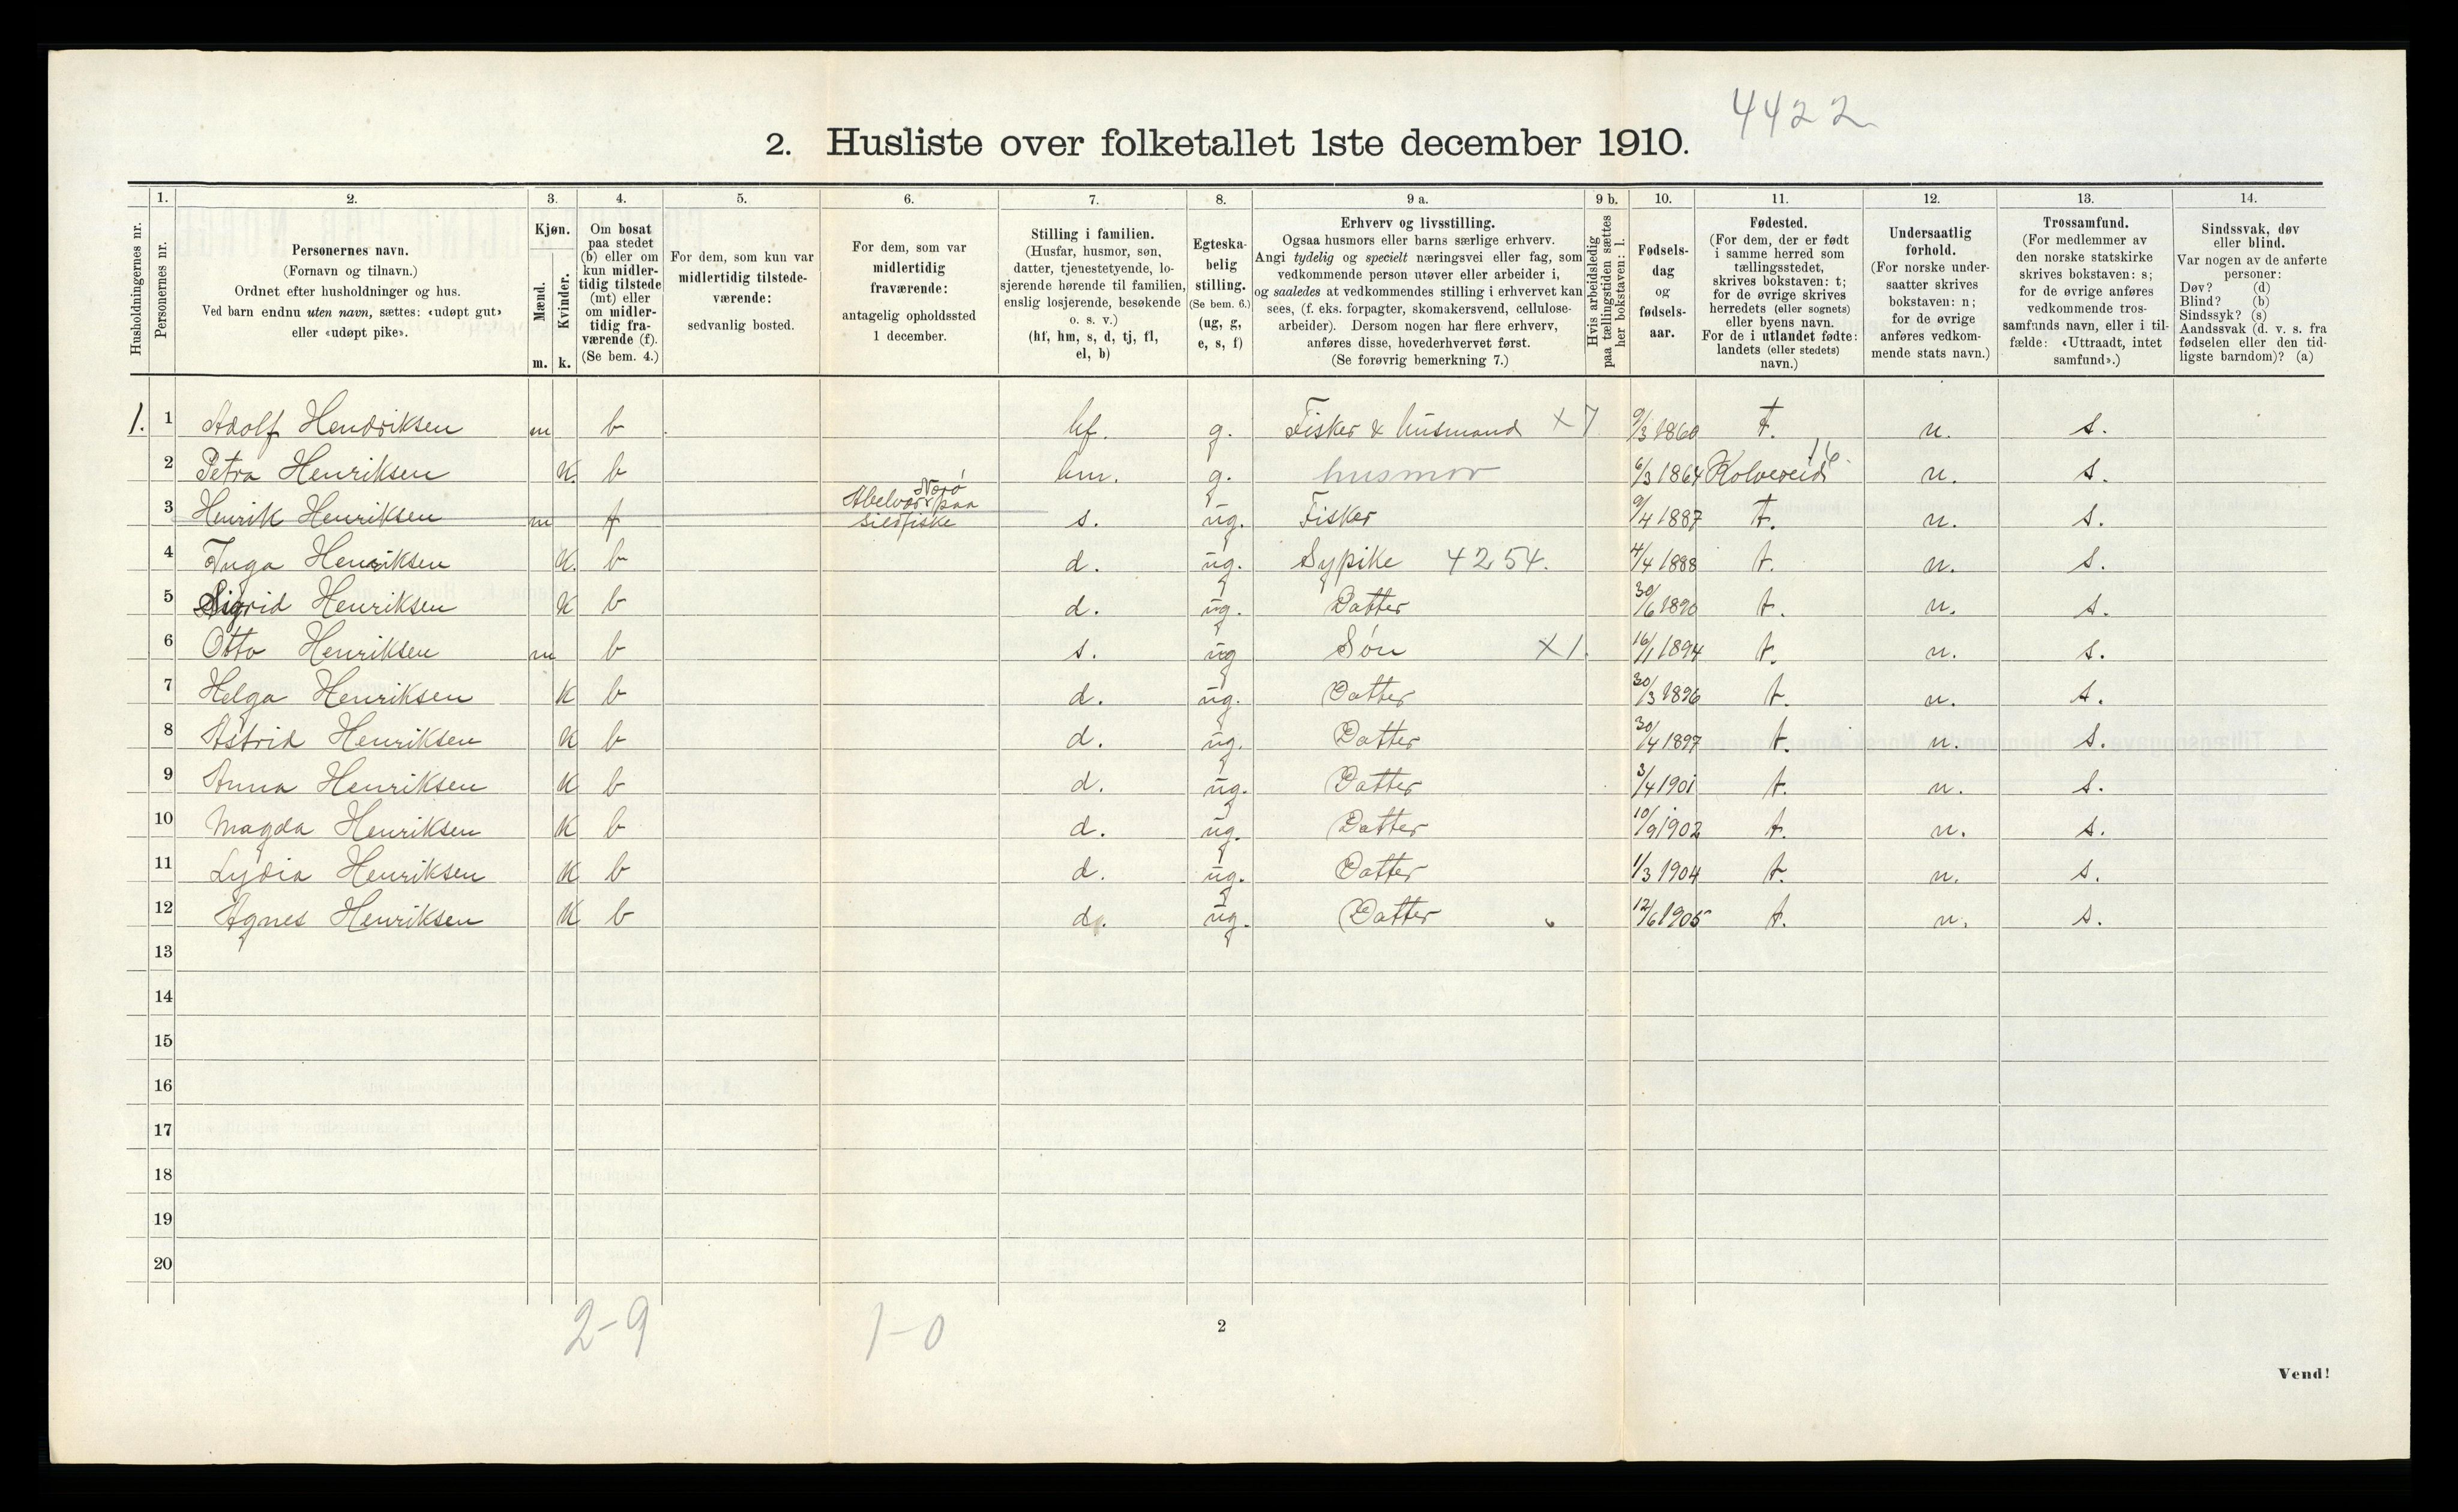 4422
2. Husliste over folketallet 1ste december 1910.
Husholdningernes nr.
1. Personernes nr.
2. Personernes navn. (Fornavn og tilnavn.) Ordnet efter husholdninger og hus. Ved barn endnu uten navn, sættes: «udøpt gut» eller «udøpt pike».
3. Kjøn. Mænd. m. Kvinder. k.
4. Om bosat paa stedet (b) eller om kun midlertidig tilstede (mt) eller om midlertidig fraværende (f). (Se bem. 4.)
5. For dem, som kun var midlertidig tilstedeværende: sedvanlig bosted.
6. For dem, som var midlertidig fraværende: antagelig opholdssted 1 december.
7. Stilling i familien. (Husfar, husmor, søn, datter, tjenestetyende, losjerende hørende til familien, enslig losjerende, besøkende o. s. v.) (hf, hm, s, d, tj, fl, el, b)
8. Egteskabelig stilling. (Se bem. 6.) (ug, g, e, s, f)
9 a. Erhverv og livsstilling. Ogsaa husmors eller barns særlige erhverv. Angi tydelig og specielt næringsvei eller fag, som vedkommende person utøver eller arbeider i, og saaledes at vedkommendes stilling i erhvervet kan sees, (f. eks. forpagter, skomakersvend, cellulosearbeider). Dersom nogen har flere erhverv, anføres disse, hovederhvervet først. (Se forøvrig bemerkning 7.)
9 b. Hvis arbeidsledig paa tællingstiden sættes her bokstaven: l.
10. Fødselsdag og fødselsaar.
11. Fødested. (For dem, der er født i samme herred som tællingsstedet, skrives bokstaven: t; for de øvrige skrives herredets (eller sognets) eller byens navn. For de i utlandet fødte: landets (eller stedets) navn.)
12. Undersaatlig forhold. (For norske undersaatter skrives bokstaven: n; for de øvrige anføres vedkommende stats navn.)
13. Trossamfund. (For medlemmer av den norske statskirke skrives bokstaven: s; for de øvrige anføres vedkommende trossamfunds navn, eller i tilfælde: «Uttraadt, intet samfund».)
14. Sindssvak, døv eller blind. Var nogen av de anførte personer: Døv? (d) Blind? (b) Sindssyk? (s) Aandssvak (d. v. s. fra fødselen eller den tidligste barndom)? (a)
1. 1 Adolf Hendriksen m b hf. g. Fisker & husmand X7 9/3 1860 t. n. s.
2 Petra Henriksen K. b hm. g. husmor 6/3 1864 Kolvereid 16. n. s.
3 Henrik Henriksen m f Abelvær Nærö paa sildfiske s. ug. Fisker 9/4 1887 t. n. s.
4 Inga Henriksen K. b d. ug. Sypike 4254. 4/4 1888 t. n. s.
5 Sigrid Henriksen K b d. ug. Datter 30/6 1890 t. n. s.
6 Otto Henriksen m b s. ug Søn X1. 16/1 1894 t. n. s.
7 Helga Henriksen K b d. ug. Datter 30/3 1896 t. n. s.
8 Astrid Henriksen K b d. ug. Datter 30/4 1897 t. n. s.
9 Anna Henriksen K b d. ug. Datter 3/4 1901 t. n. s.
10 Magda Henriksen K b d. ug. Datter 10/9 1902 t. n. s.
11 Lydia Henriksen K b d. ug. Datter 1/3 1904 t. n. s.
12 Agnes Henriksen K b d. ug. Datter 12/6 1905 t. n. s.
13
14
15
16
17
18
19
20
2-9 1-0
2
Vend!